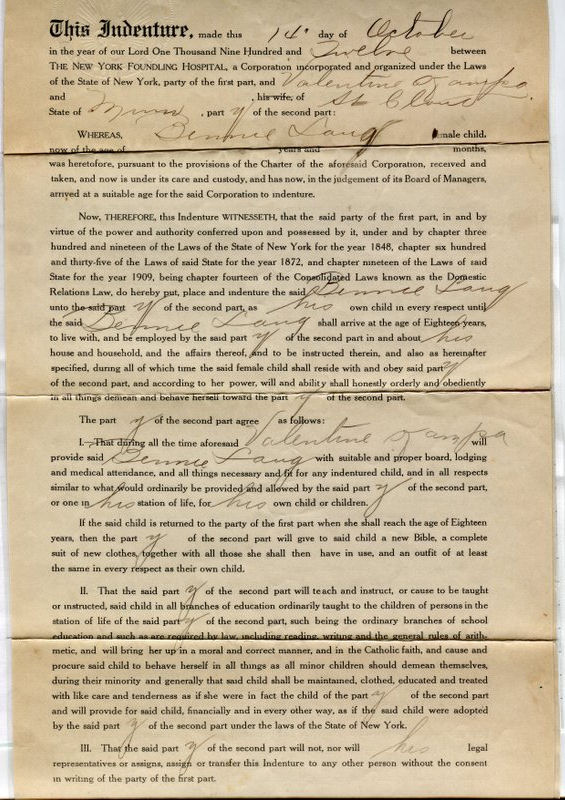 This Indenture, made this 14" day of October
in the year of our Lord One Thousand Nine Hundred and Twelve between
THE NEW YORK FOUNDLING HOSPITAL, a Corporation incorporated and organized under the Laws
of the State of New York, party of the first part, and Valentine
and , his wife, of St Cloud
State of Minn , part y of the second part:
WHEREAS, Bennie Laug male child,
now of the age of years and months,
was heretofore, pursuant to the provisions of the Charter of the aforesaid Corporation, received and
taken, and now is under its care and custody, and has now, in the judgement of its Board of Managers,
arrived at a suitable age for the said Corporation to indenture.
Now, THEREFORE, this Indenture WITNESSETH, that the said party of the first part, in and by
virtue of the power and authority conferred upon and possessed by it, under and by chapter three
hundred and nineteen of the Laws of the State of New York for the year 1848, chapter six hundred
and thirty-five of the Laws of said State for the year 1872, and chapter nineteen of the Laws of said
State for the year 1909, being chapter fourteen of the Consolidated Laws known as the Domestic
Relations Law, do hereby put, place and indenture the said Bennie Laug
unto the said part y of the second part, as his own child in every respect until
the said Bennie Laug shall arrive at the age of Eighteen years,
to live with, and be employed by the said part y of the second part in and about his
house and household, and the affairs thereof, and to be instructed therein, and also as hereinafter
specified, during all of which time the said female child shall reside with and obey said part y
of the second part, and according to her power, will and ability shall honestly orderly and obediently
in all things demean and behave herself toward the part y of the second part.
The part y of the second part agree as follows:
I. That during all the time aforesaid Valentine will
provide said Bennie Laug with suitable and proper board, lodging
and medical attendance, and all things necessary and fit for any indentured child, and in all respects
similar to what would ordinarily be provided and allowed by the said part y of the second part,
or one in his station of life, for his own child or children.
If the said child is returned to the party of the first part when she shall reach the age of Eighteen
years, then the part y of the second part will give to said child a new Bible, a complete
suit of new clothes, together with all those she shall then have in use, and an outfit of at least
the same in every respect as their own child.
II. That the said part y of the second part will teach and instruct, or cause to be taught
or instructed, said child in all branches of education ordinarily taught to the children of persons in the
station of life of the said part y of the second part, such being the ordinary branches of school
education and such as are required by law, including reading, writing and the general rules of arith-
metic, and will bring her up in a moral and correct manner, and in the Catholic faith, and cause and
procure said child to behave herself in all things as all minor children should demean themselves,
during their minority and generally that said child shall be maintained, clothed, educated and treated
with like care and tenderness as if she were in fact the child of the part y of the second part
and will provide for said child, financially and in every other way, as if the said child were adopted
by the said part y of the second part under the laws of the State of New York.
III. That the said part y of the second part will not, nor will his legal
representatives or assigns, assign or transfer this Indenture to any other person without the consent
in writing of the party of the first part.